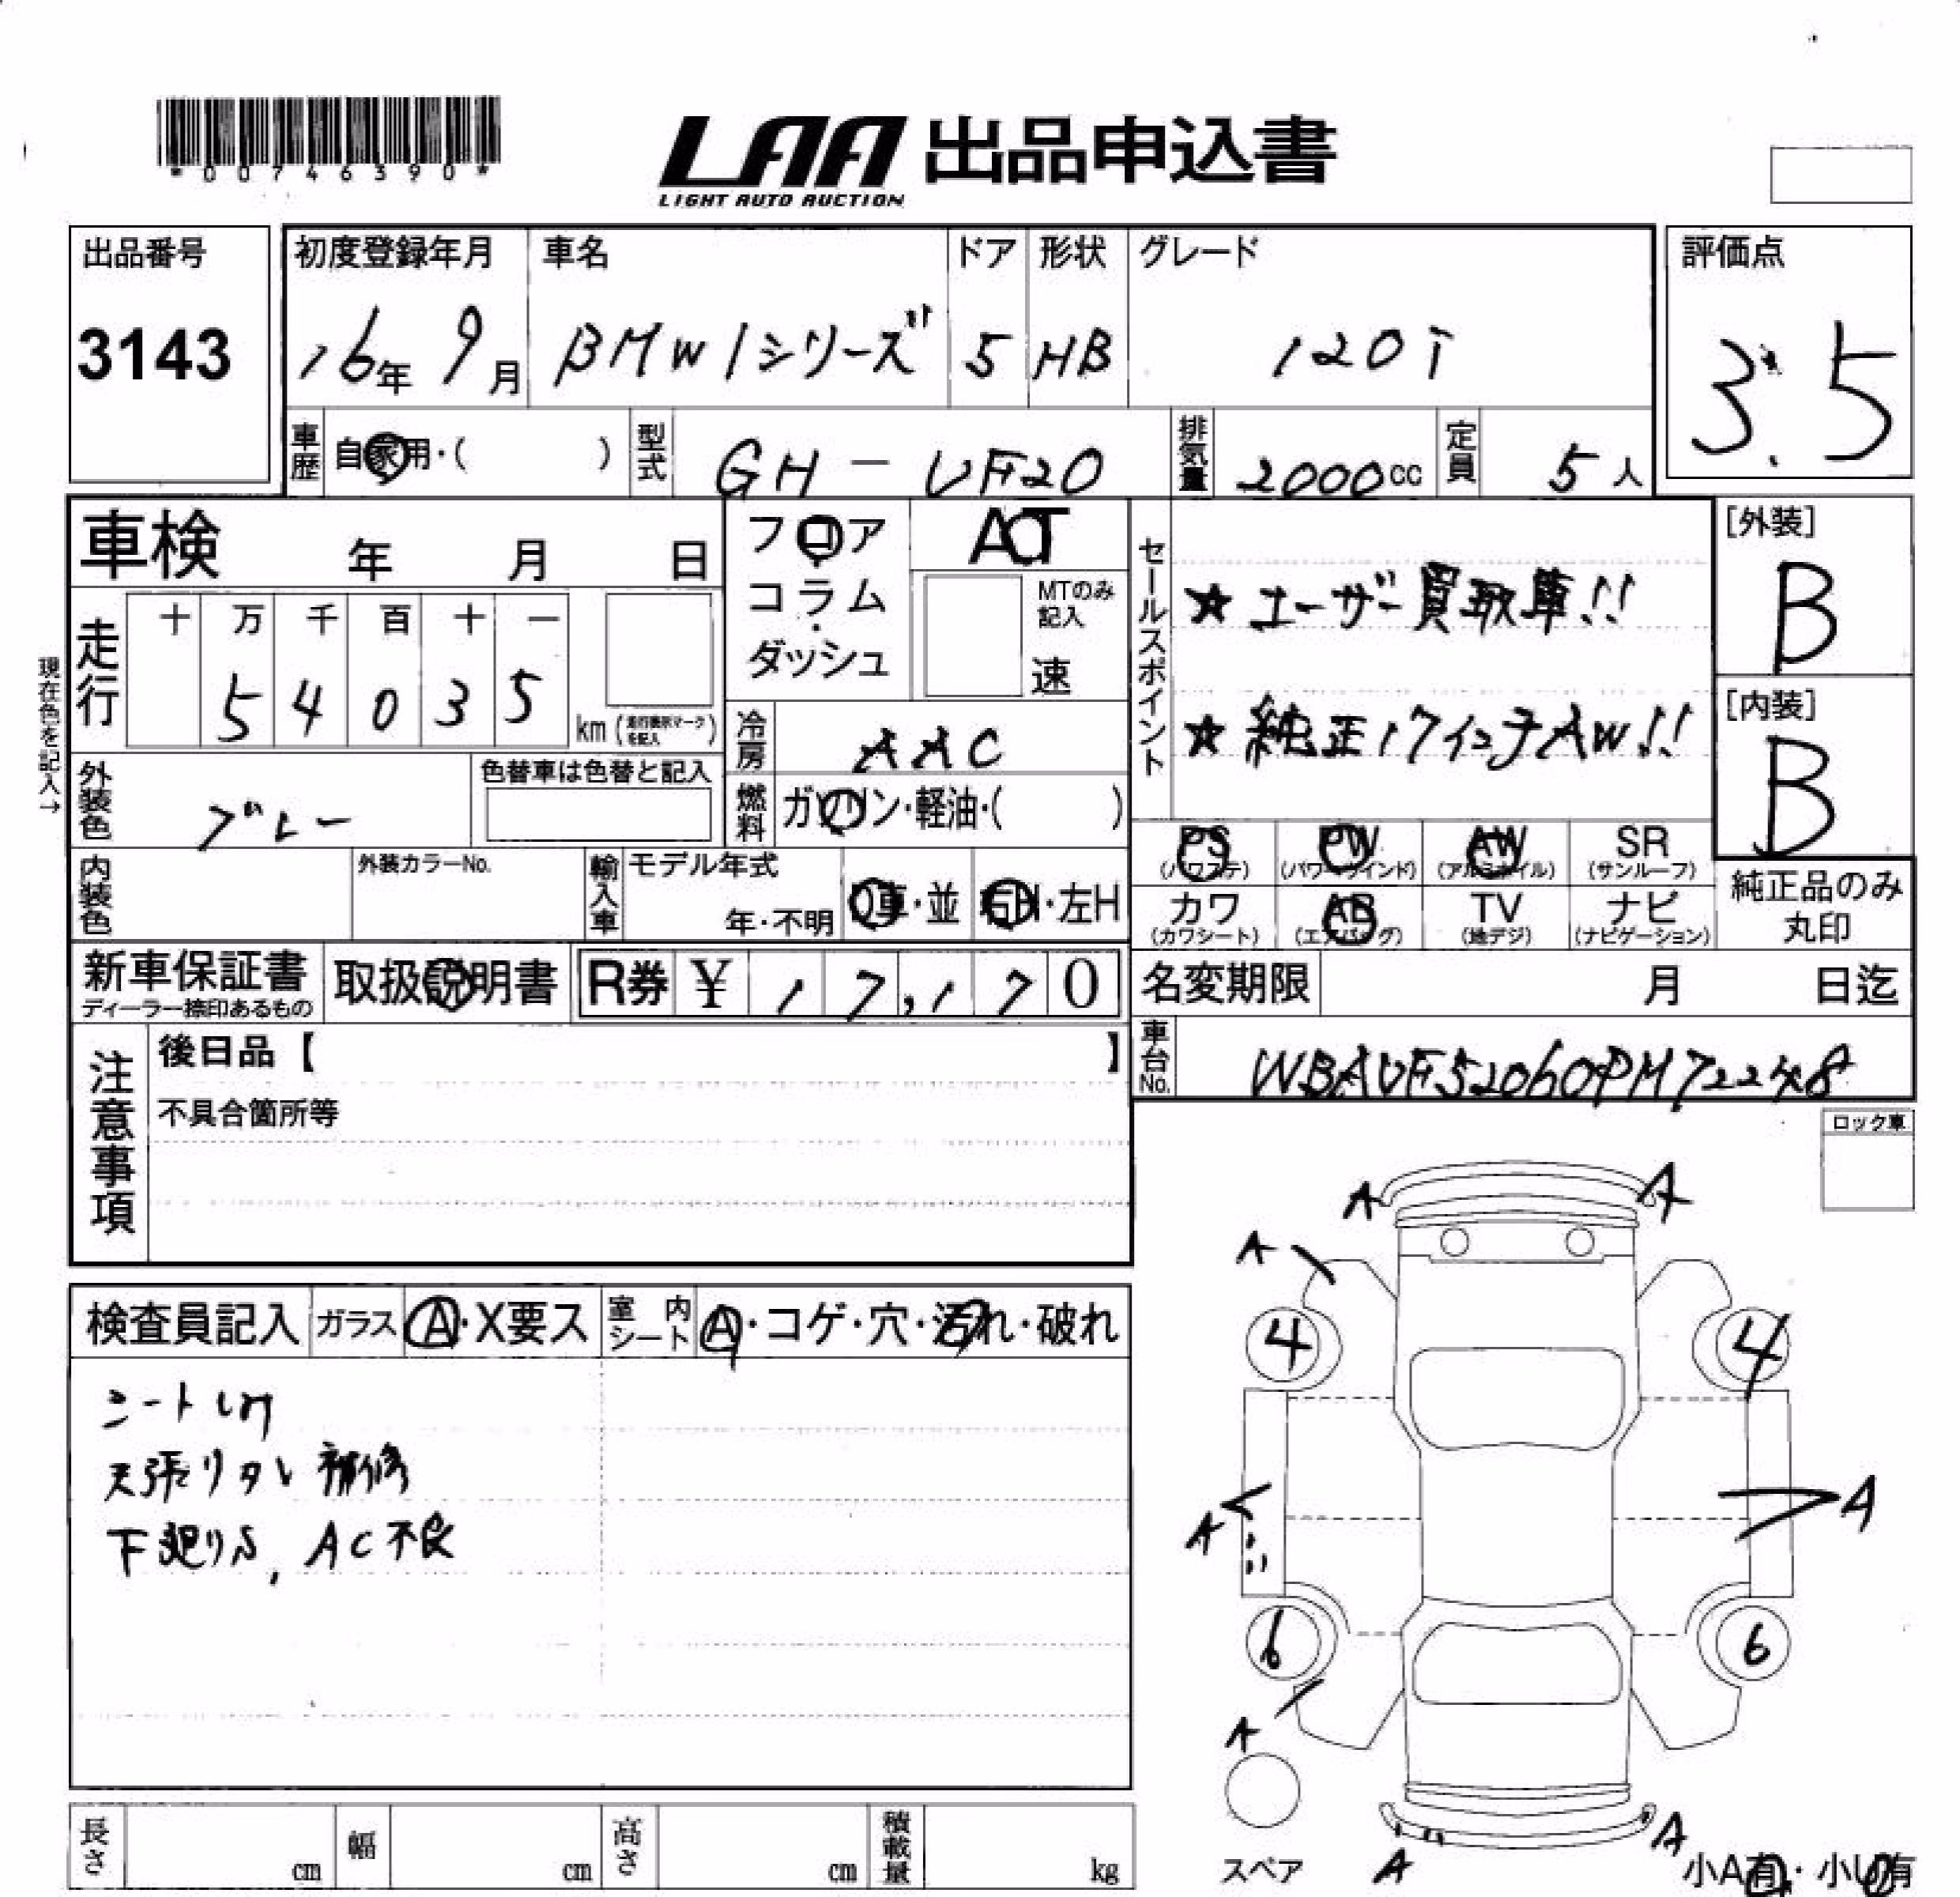 *00746390*
LAA 出品申込書
LIGHT AUTO AUCTION
出品番号
3143
初度登録年月
16年 9月
車名
BMW 1シリーズ
ドア
5
形状
HB
グレード
120i
評価点
3.5
車歴
自家用・( )
型式
GH-UF20
排気量
2000cc
定員
5人
車検 年 月 日
フロア
コラム
・
ダッシュ
AT
MTのみ
記入
速
セールスポイント
★ユーザー買取車!!
★純正17インチAW!!
[外装]
B
[内装]
B
現在色を記入→
走行
十 万 千 百 十 一
5 4 0 3 5
km (走行表示マークを記入)
冷房
AAC
外装色
グレー
色替車は色替と記入
燃料
ガソリン・軽油・( )
PS
(パワステ)
PW
(パワーウインド)
AW
(アルミホイル)
SR
(サンルーフ)
カワ
(カワシート)
AB
(エアバッグ)
TV
(地デジ)
ナビ
(ナビゲーション)
純正品のみ
丸印
内装色
外装カラーNo.
輸入車
モデル年式
年・不明
D車・並
右H・左H
新車保証書
ディーラー捺印あるもの
取扱説明書
R券 ¥ 17,170
名変期限 月 日迄
車台No.
WBAUF52060PM72248
注意事項
後日品【 】
不具合箇所等
ロック車
検査員記入
ガラス
A・X要ス
室内シート
A・コゲ・穴・汚れ・破れ
天張りタレ補修
下廻りS, AC不良
A A
A
4 4
A A
6 6
A
スペア
A A
小A有・小U有
長さ cm
幅 cm
高さ cm
積載量 kg